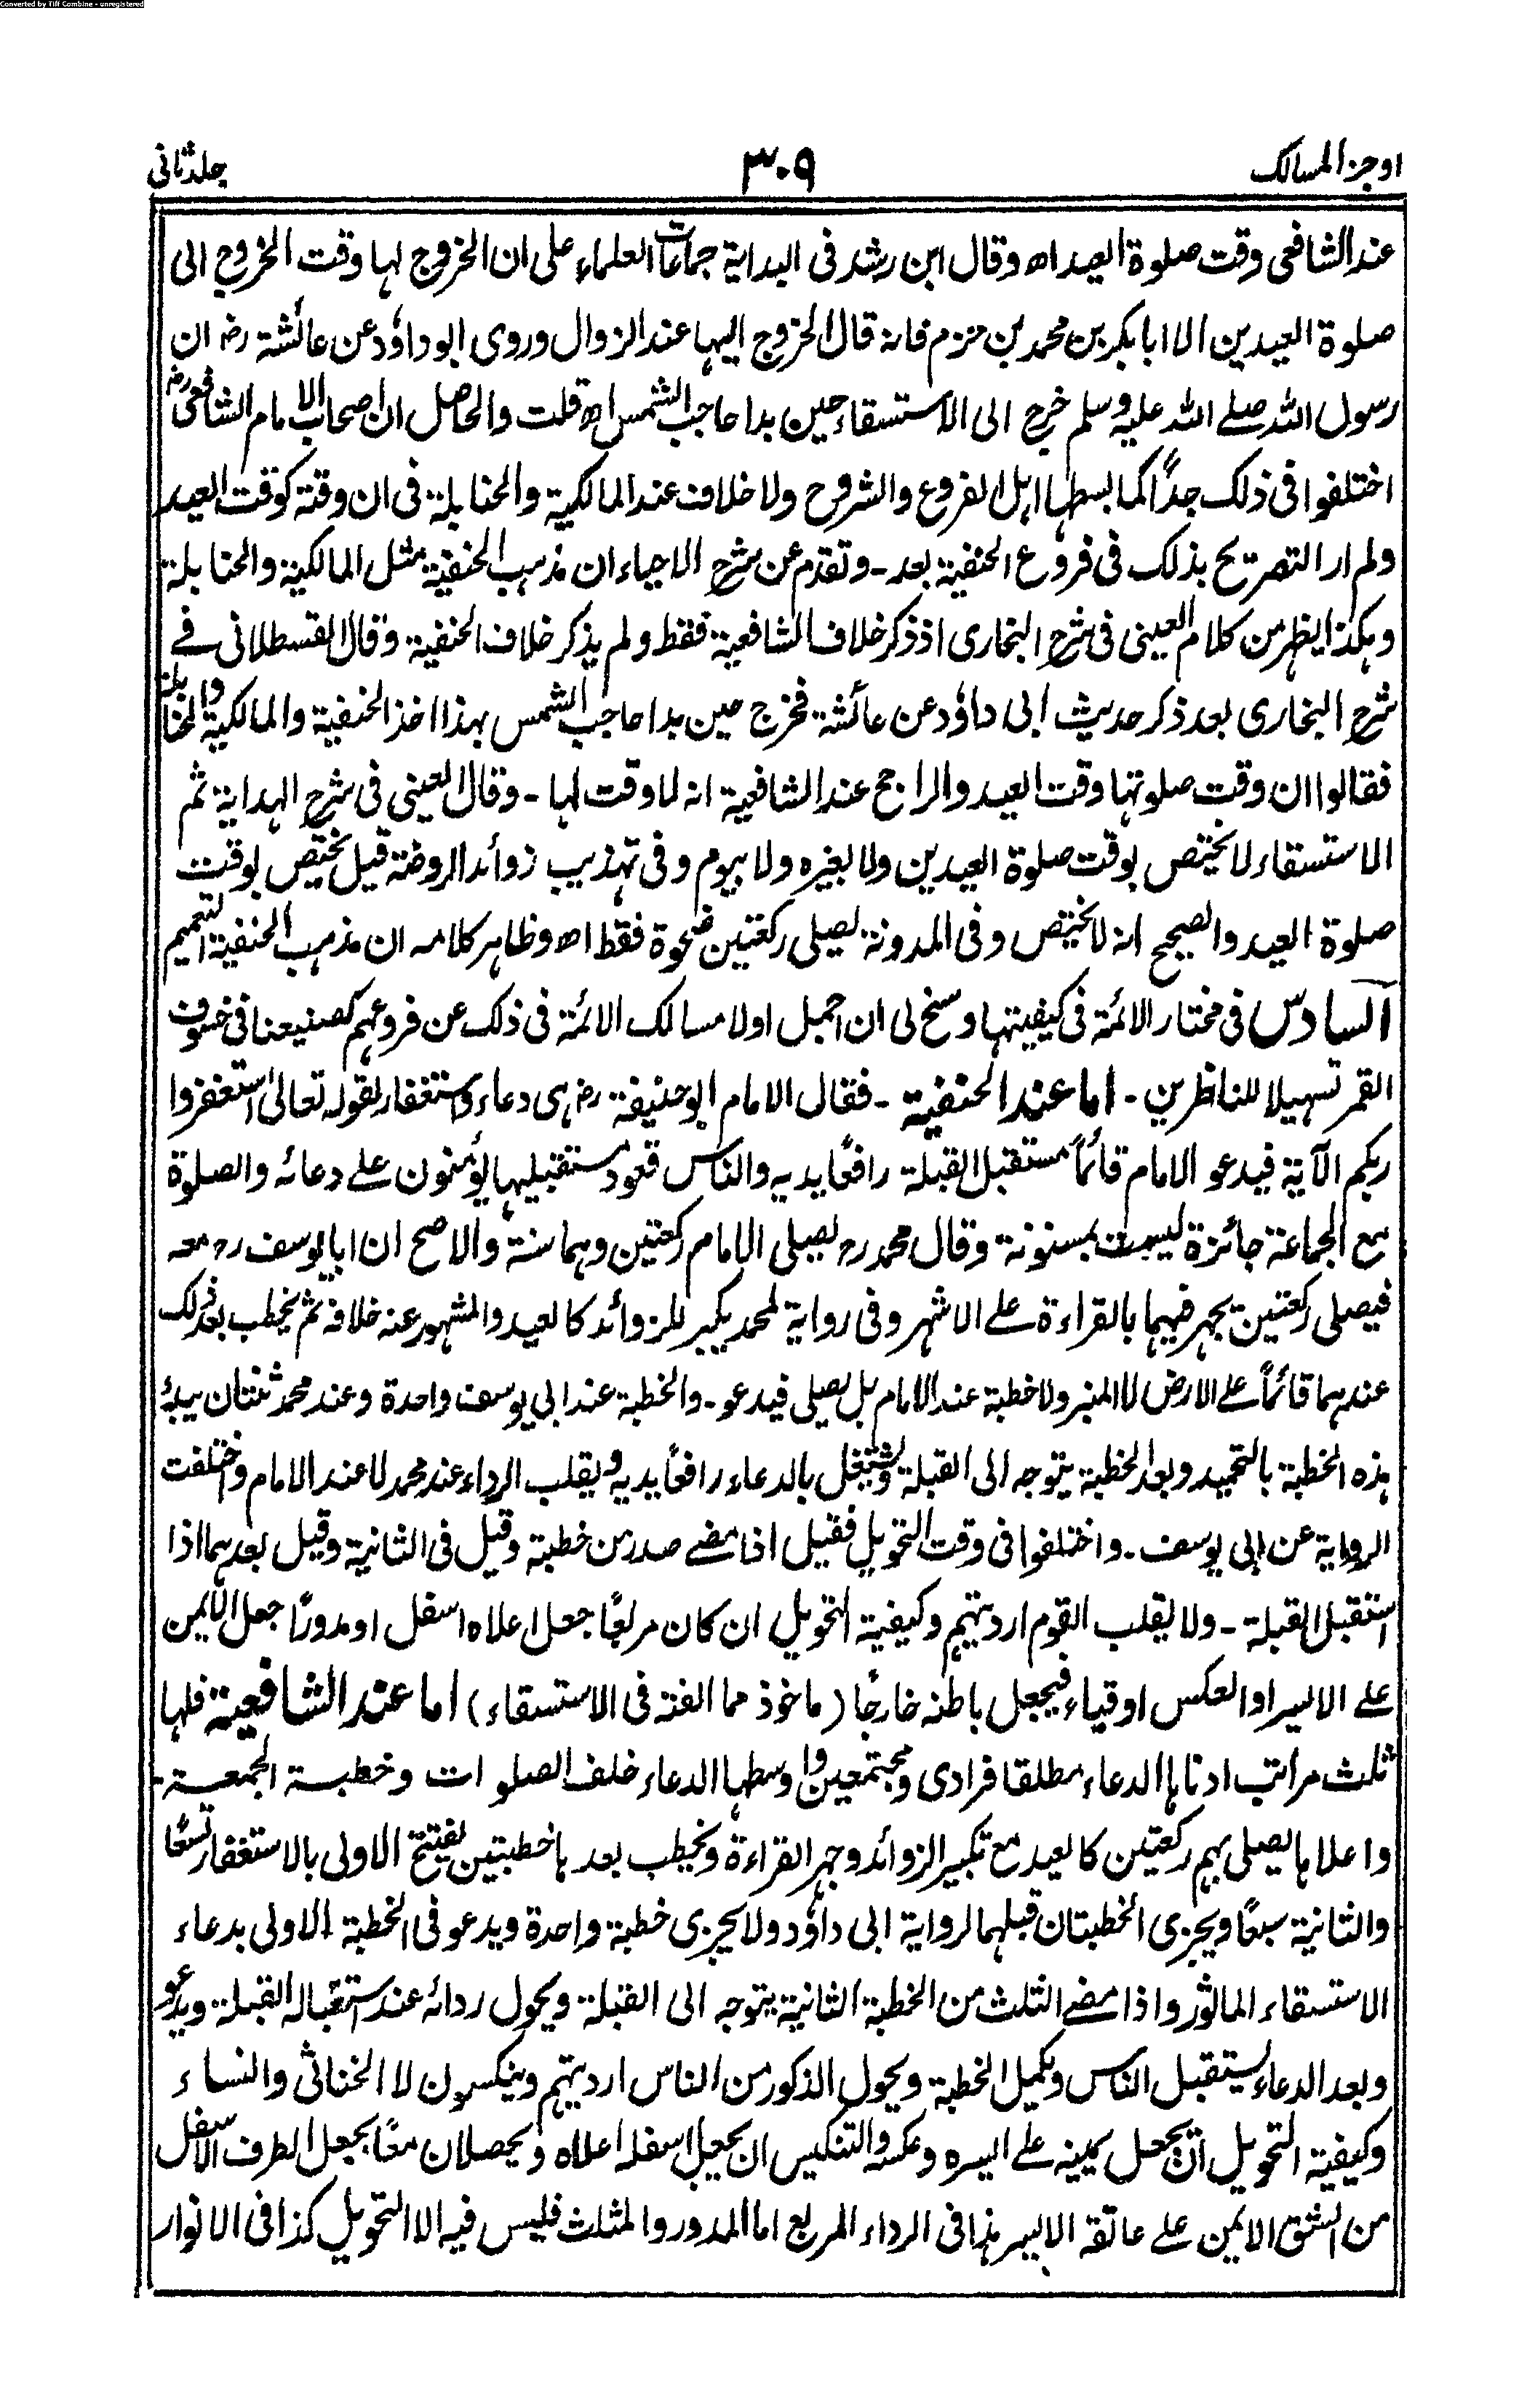 Converted by Tiff Combine - unregistered
اوجز المسالک ٣٠٩ جلد ثانی
عند الشافعی وقت صلوة العید اھ وقال ابن رشد فی البدایة جماعات العلماء علی ان الخروج لہا وقت الخروج الی
صلوة العیدین الا ابا بکر بن محمد بن حزم فانہ قال الخروج الیہا عند الزوال وروی ابو داؤد عن عائشة رض ان
رسول اللہ صلے اللہ علیہ وسلم خرج الی الاستسقاء حین بدا حاجب الشمس اھ قلت والحاصل ان اصحاب الامام الشافعی رض
اختلفوا فی ذلک جداً کما بسطہا اہل الفروع والشروح ولا خلاف عند المالکیة والحنابلة فی ان وقتہ کوقت العید
ولم ار التصریح بذلک فی فروع الحنفیة بعد ۔ وتقدم عن شرح الاحیاء ان مذہب الحنفیة مثل المالکیة والحنابلة
وہکذا یظہر من کلام العینی فی شرح البخاری اذ ذکر خلاف الشافعیة فقط ولم یذکر خلاف الحنفیة وقال القسطلانی فے
شرح البخاری بعد ذکر حدیث ابی داؤد عن عائشة فخرج حین بدا حاجب الشمس بہذا اخذ الحنفیة والمالکیة والحنابلة
فقالوا ان وقت صلوتہا وقت العید والراجح عند الشافعیة انہ لا وقت لہا ۔ وقال العینی فی شرح الہدایة ثم
الاستسقاء لا یختص بوقت صلوة العیدین ولا بغیرہ ولا بیوم وفی تہذیب زوائد الروضة قیل یختص بوقت
صلوة العید والصحیح انہ لا یختص وفی المدونة یصلی رکعتین ضحوة فقط اھ وظاہر کلامہ ان مذہب الحنفیة التعمیم
السادس فی مختار الائمة فی کیفیتہا وسنح لی ان اجمل اولا مسالک الائمة فی ذلک عن فروعہم کصنیعنا فی خسوف
القمر تسہیلا للناظرین ۔ اما عند الحنفیة ۔ فقال الامام ابو حنیفة رض ہی دعاء واستغفار لقولہ تعالیٰ استغفروا
ربکم الآیة فیدعو الامام قائماً مستقبل القبلة رافعاً یدیہ والناس قعود مستقبلیہا یؤمنون علے دعائہ والصلوة
مع الجماعة جائزة لیست بمسنونة وقال محمد رح یصلی الامام رکعتین وہما سنة والاصح ان ابا یوسف رح معہ
فیصلی رکعتین یجہر فیہما بالقراءة علے الاشہر وفی روایة لمحمد یکبر للزوائد کالعید والمشہور عنہ خلافہ ثم یخطب بعد ذلک
عندہما قائماً علے الارض لا المنبر ولا خطبة عند الامام بل یصلی فیدعو ۔ والخطبة عند ابی یوسف واحدة وعند محمد ثنتان یبدأ
ہذہ الخطبة بالتحمید وبعد الخطبة یتوجہ الی القبلة ویشتغل بالدعاء رافعاً یدیہ ویقلب الرداء عند محمد لا عند الامام واختلفت
الروایة عن ابی یوسف ۔ واختلفوا فی وقت التحویل فقیل اذا مضے صدر من خطبة وقیل فی الثانیة وقیل بعدہما اذا
استقبل القبلة ۔ ولا یقلب القوم اردیتہم وکیفیة التحویل ان کان مربعاً جعل اعلاہ اسفل او مدوراً جعل الایمن
علے الایسر او العکس او قباء فیجعل باطنہ خارجاً (ماخوذ مما الفتہ فی الاستسقاء) اما عند الشافعیة فلہا
ثلث مراتب ادناہا الدعاء مطلقا فرادی ومجتمعین واوسطہا الدعاء خلف الصلوات وخطبة الجمعة
واعلاہا یصلی بہم رکعتین کالعید مع تکبیر الزوائد وجہر القراءة ویخطب بعدہا خطبتین یفتتح الاولی بالاستغفار تسعاً
والثانیة سبعاً ویجزی الخطبتان قبلہما لروایة ابی داؤد ولا یجزی خطبة واحدة ویدعو فی الخطبة الاولی بدعاء
الاستسقاء الماثور واذا مضے الثلث من الخطبة الثانیة یتوجہ الی القبلة ویحول ردائہ عند استقبالہ القبلة ویدعو
وبعد الدعاء یستقبل الناس ویکمل الخطبة ویحول الذکور من الناس اردیتہم وینکسون لا الخناثی والنساء
وکیفیة التحویل ان یجعل یمینہ علے الیسرہ وعکسہ والتنکیس ان یجعل اسفلہ اعلاہ ویحصلان معاً بجعل الطرف الاسفل
من الشق الایمن علے عاتقہ الایسر ہذا فی الرداء المربع اما المدور والمثلث فلیس فیہ الا التحویل کذا فی الانوار